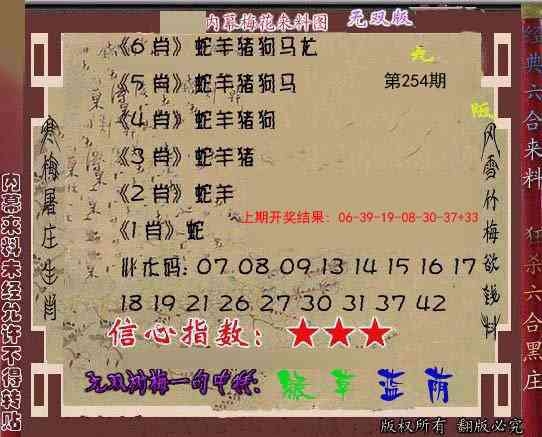 内幕梅花来料图 无双版
《6肖》蛇羊猪狗马龙
《5肖》蛇羊猪狗马
第254期
《4肖》蛇羊猪狗
《3肖》蛇羊猪
《2肖》蛇羊
上期开奖结果：06-39-19-08-30-37+33
《1肖》蛇
07 08 09 13 14 15 16 17
18 19 21 26 27 30 31 37 42
信心指数：★★★
版权所有 翻版必究
寒梅屠庄生肖
风雪竹梅欲钱料
内幕来料未经允许不得转贴
经典六合来料 狂杀六合黑庄